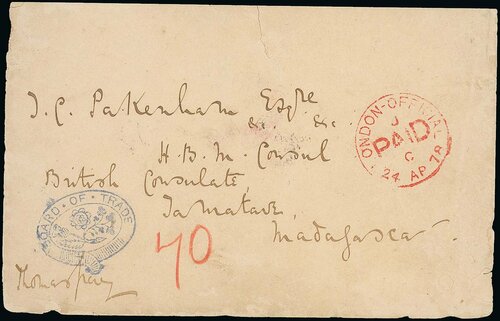 T. C. Pakenham Esqre
&c &c
H. B. M. Consul
British Consulate,
Tamatave,
Madagascar.
LONDON-OFFICIAL
PAID
C
24 AP 78
BOARD · OF · TRADE
70